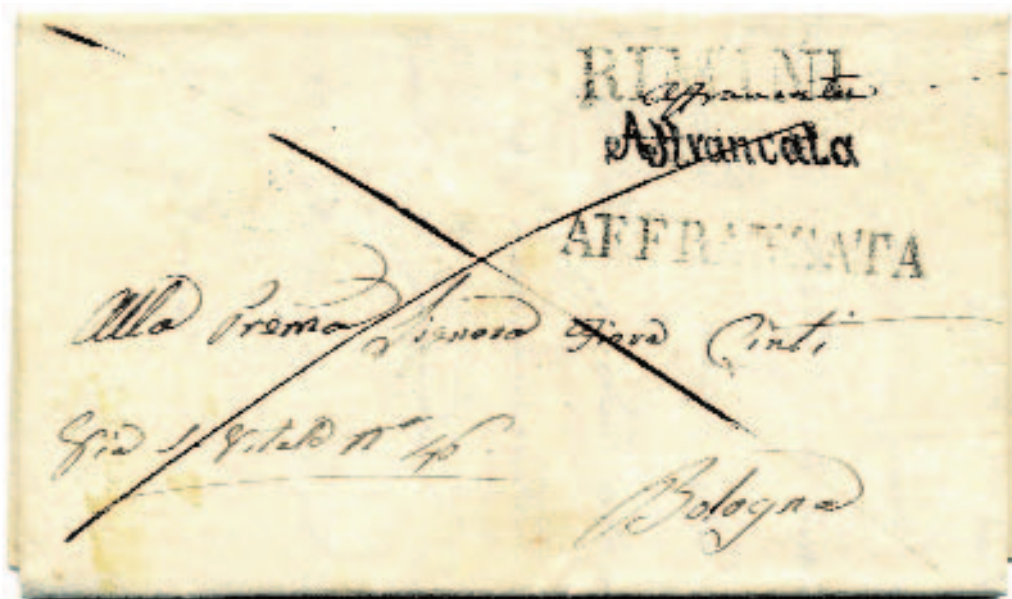 RIMINI
affrancata
Affrancata
AFFRANCATA
Alla Prema Signora Cinti
Via S. Vitale N° 46
Bologna